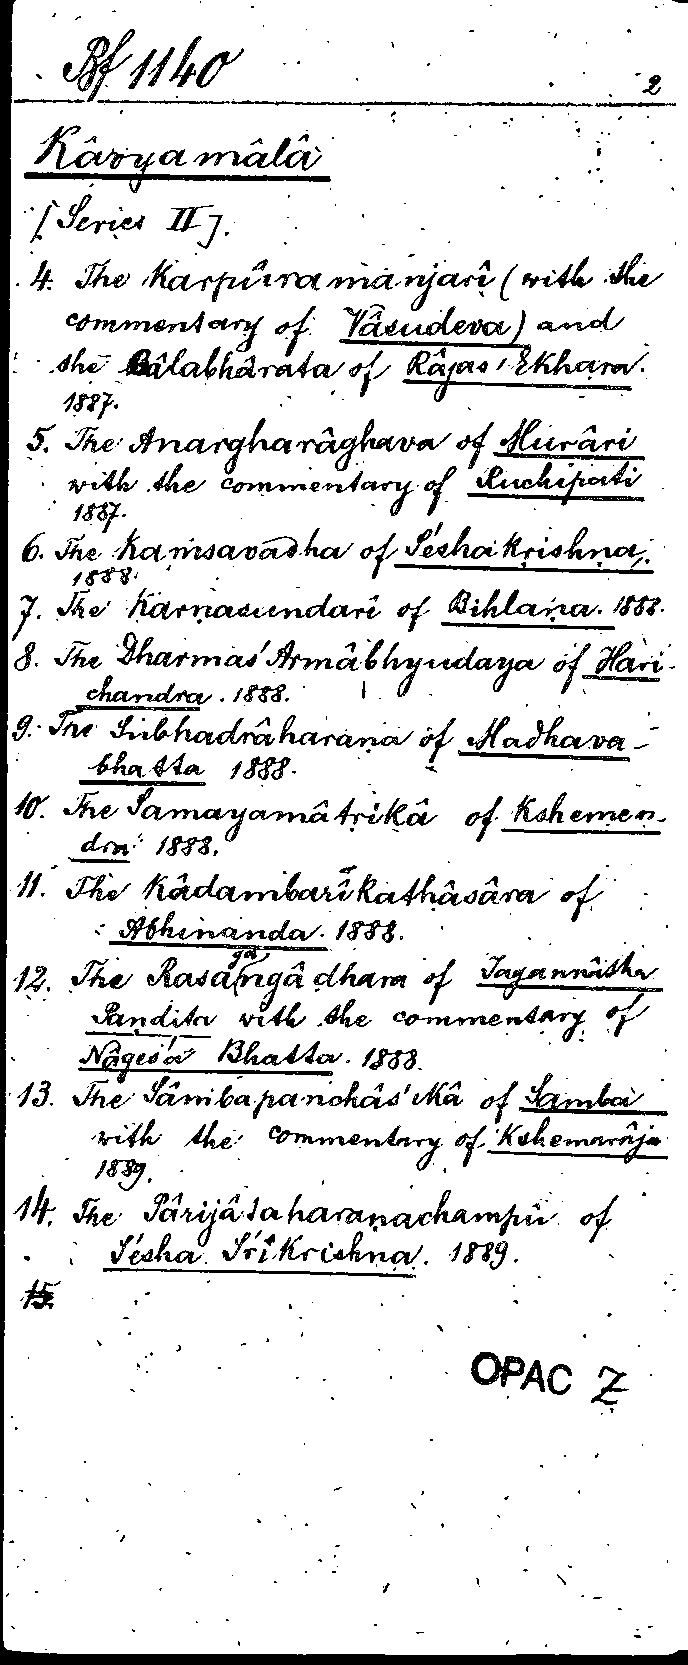 Bf 1140
2
Kâvyamâlâ
[Series II].
4. The Karpûramanjarî (with the
commentary of Vâsudeva) and
the Bâlabhârata of Râjas'Ekhara.
1887.
5. The Anargharâghava of Murâri
with the commentary of Ruchipati
1887.
6. The Kaṁsavadha of S'eshakṛishṇa.
1888.
7. The Karṇasundarî of Bihlaṇa. 1888.
8. The Dharmas'Armâbhyudaya of Hari-
chandra. 1888.
9. The Subhadrâharaṇa of Madhava-
bhatta 1888.
10. The Samayamâtṛikâ of Kshemen-
dra 1888.
11. The Kâdambarîkathâsâra of
Abhinanda. 1888.
12. The Rasagaṅgâdhara of Jagannâtha
Paṇḍita with the commentary of
Nâges'a Bhatta. 1888.
13. The Sâmbapanchâs'ikâ of Samba
with the commentary of Kshemarâja
1889.
14. The Pârijâtaharaṇachampû of
S'esha S'rîkṛishṇa. 1889.
15.
OPAC Z